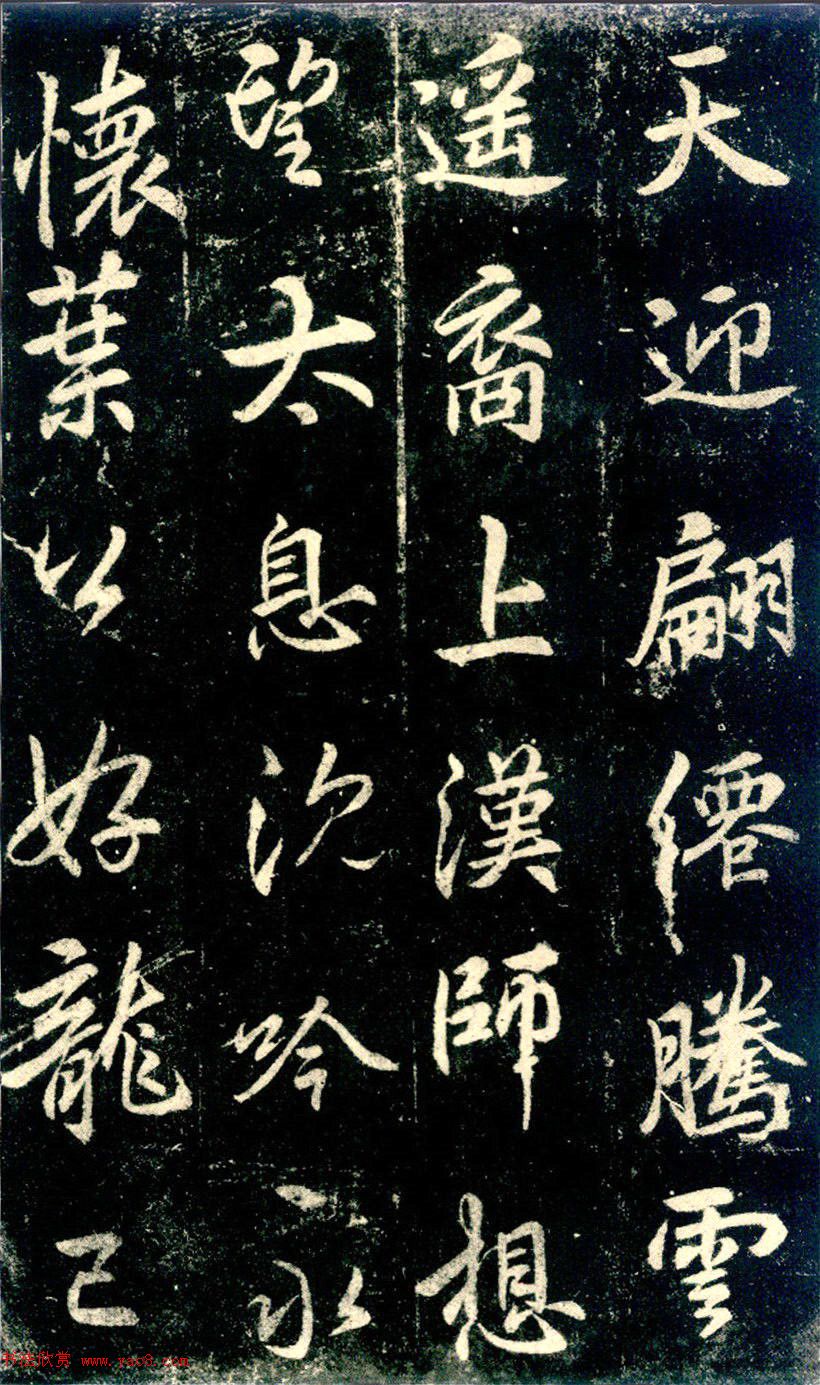 天迎翩僊騰雲
遥裔上漢師想
望太息沉吟永
懷葉以好龍已
书法欣赏 www.yac8.com